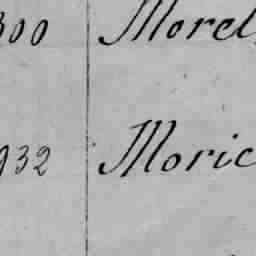 300 Morel
932 Moric